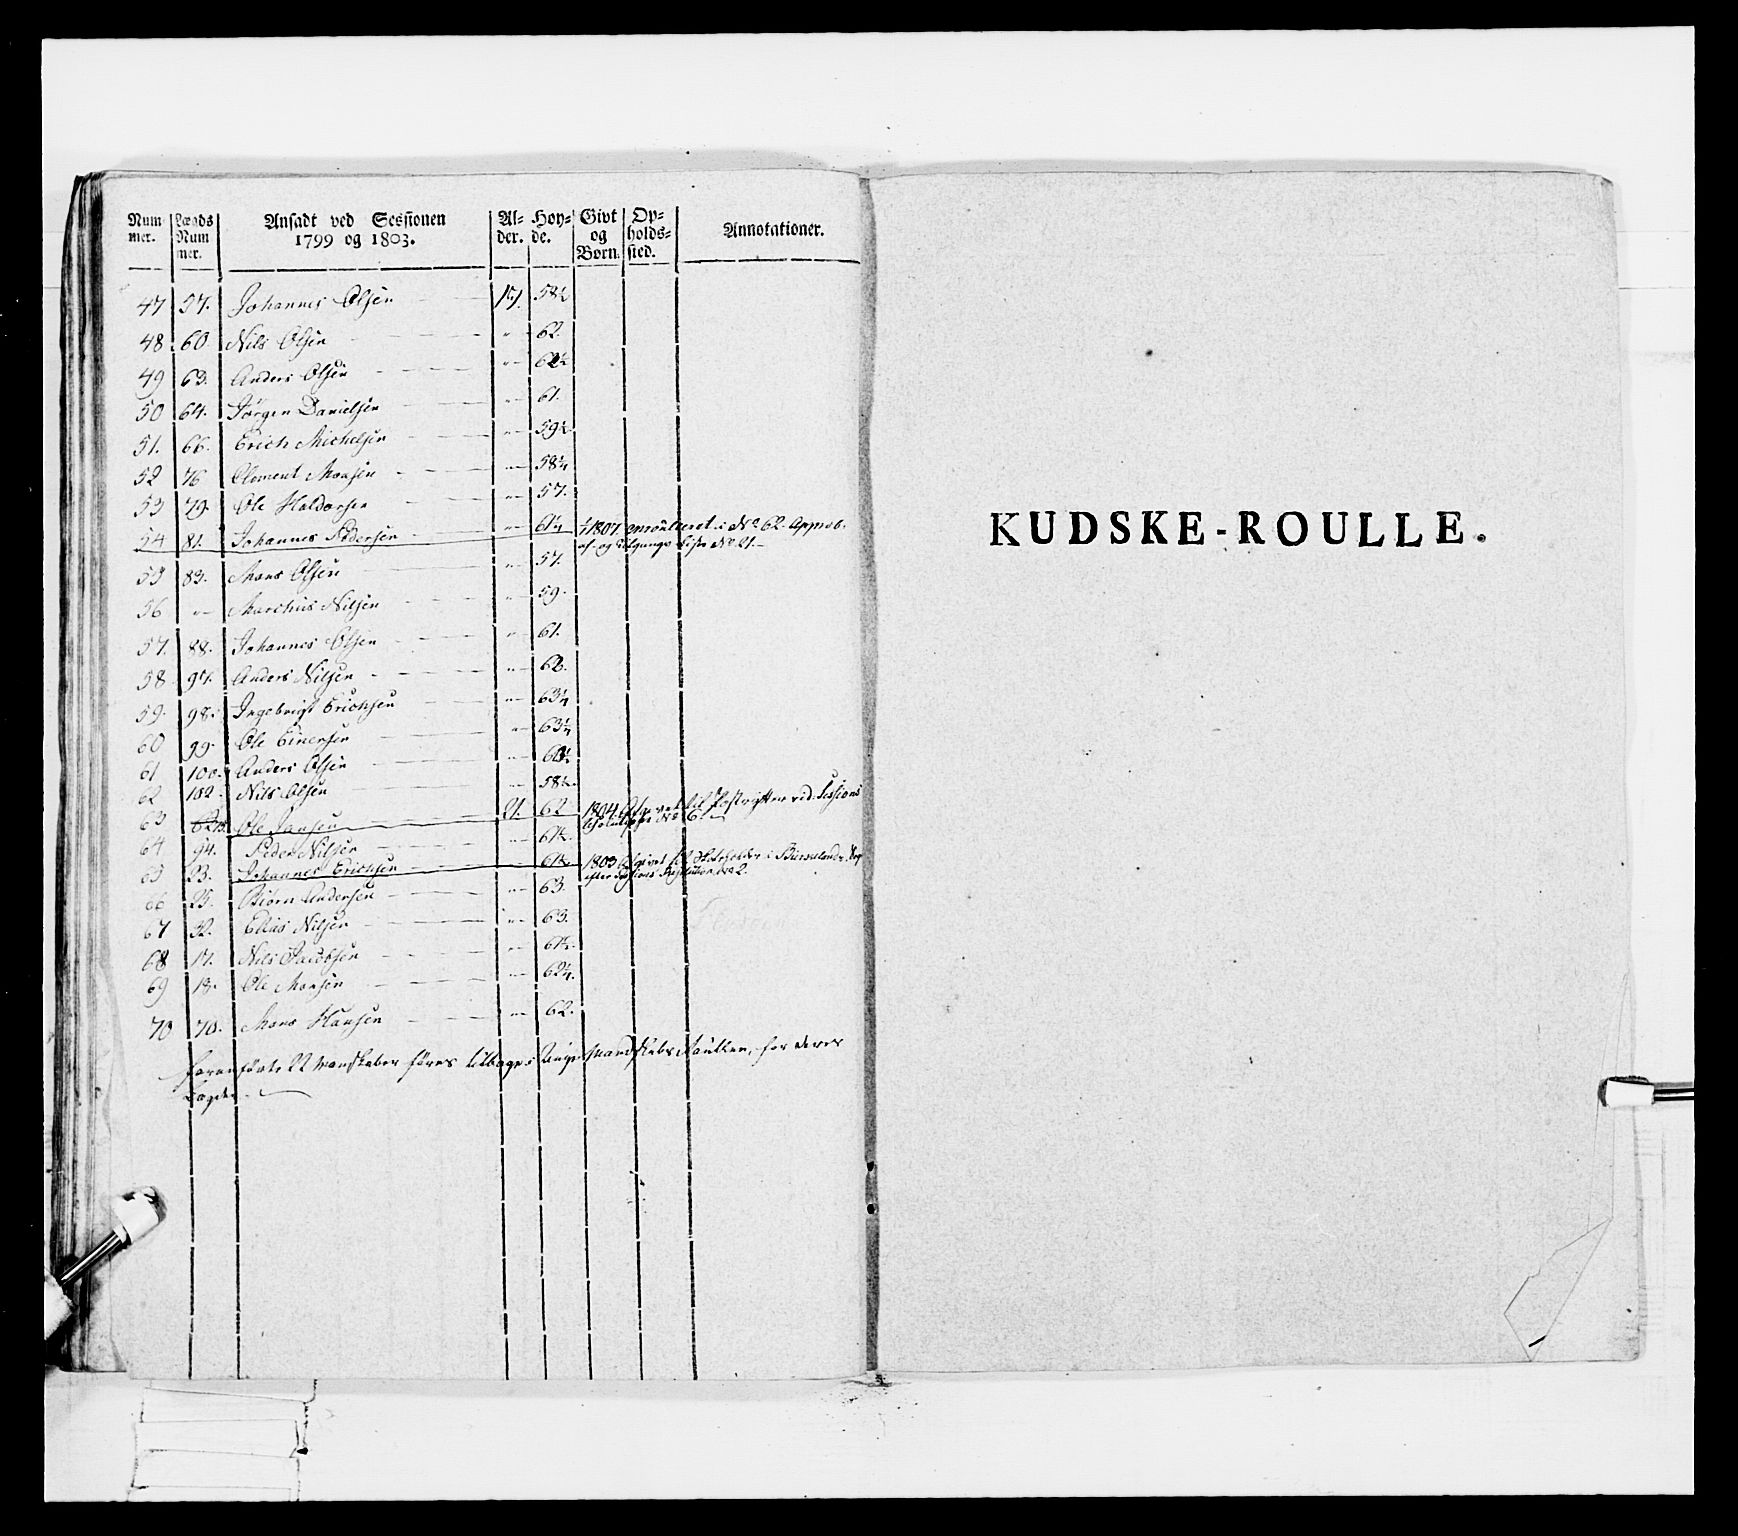 Num- Lægds Ansadt ved Sessionen Al- Høy- Givt Op- Annotationer.
mer. Num 1799 og 1803. der. de. og holds-
mer. Børn. sted.
47 57. Johannes Olsen 17. 58½
48 60. Nils Olsen " 62.
49 63. Anders Olsen "
50 64. Jörgen Danielsen " 61.
51. 66. Erich Michelsen " 59½
52 76 Clement Monsen " 58¼
53 79. Ole Haldorsen " 57.
54 81. Johannes Pedersen " 61¼ 1807 enroulleret i No 62. Approb.
af- og Tilgangs Liste No 21.
55 83. Mons Olsen " 57.
56 " Marchus Nilsen " 59.
57. 88. Johannes Olsen " 61.
58 97. Anders Nilsen " 62.
59. 98. Ingebrigt Erichsen " 63¼
60 99. Ole Einersen " 63¼
61 100. Anders Olsen "
62 102. Nils Olsen " 58½
63 Ole Jansen 21. 62 1804 til ved Sessions
No 6.
64 94. Peder Nilsen " 61½
65 23. Johannes Erichsen " 61½ 1803 til i
efter Sessions No 2.
66 25. Biörn Andersen " 63.
67 32. Elias Nilsen " 63.
68 17. Nils Jacobsen " 61½
69 18. Ole Monsen " 62¼
70 70. Mons Hansen " 62.
foranförte 22 Mandskaber föres tilbage i Unge Mandskabs Roullen, for deres
Lægder.
KUDSKE-ROULLE.